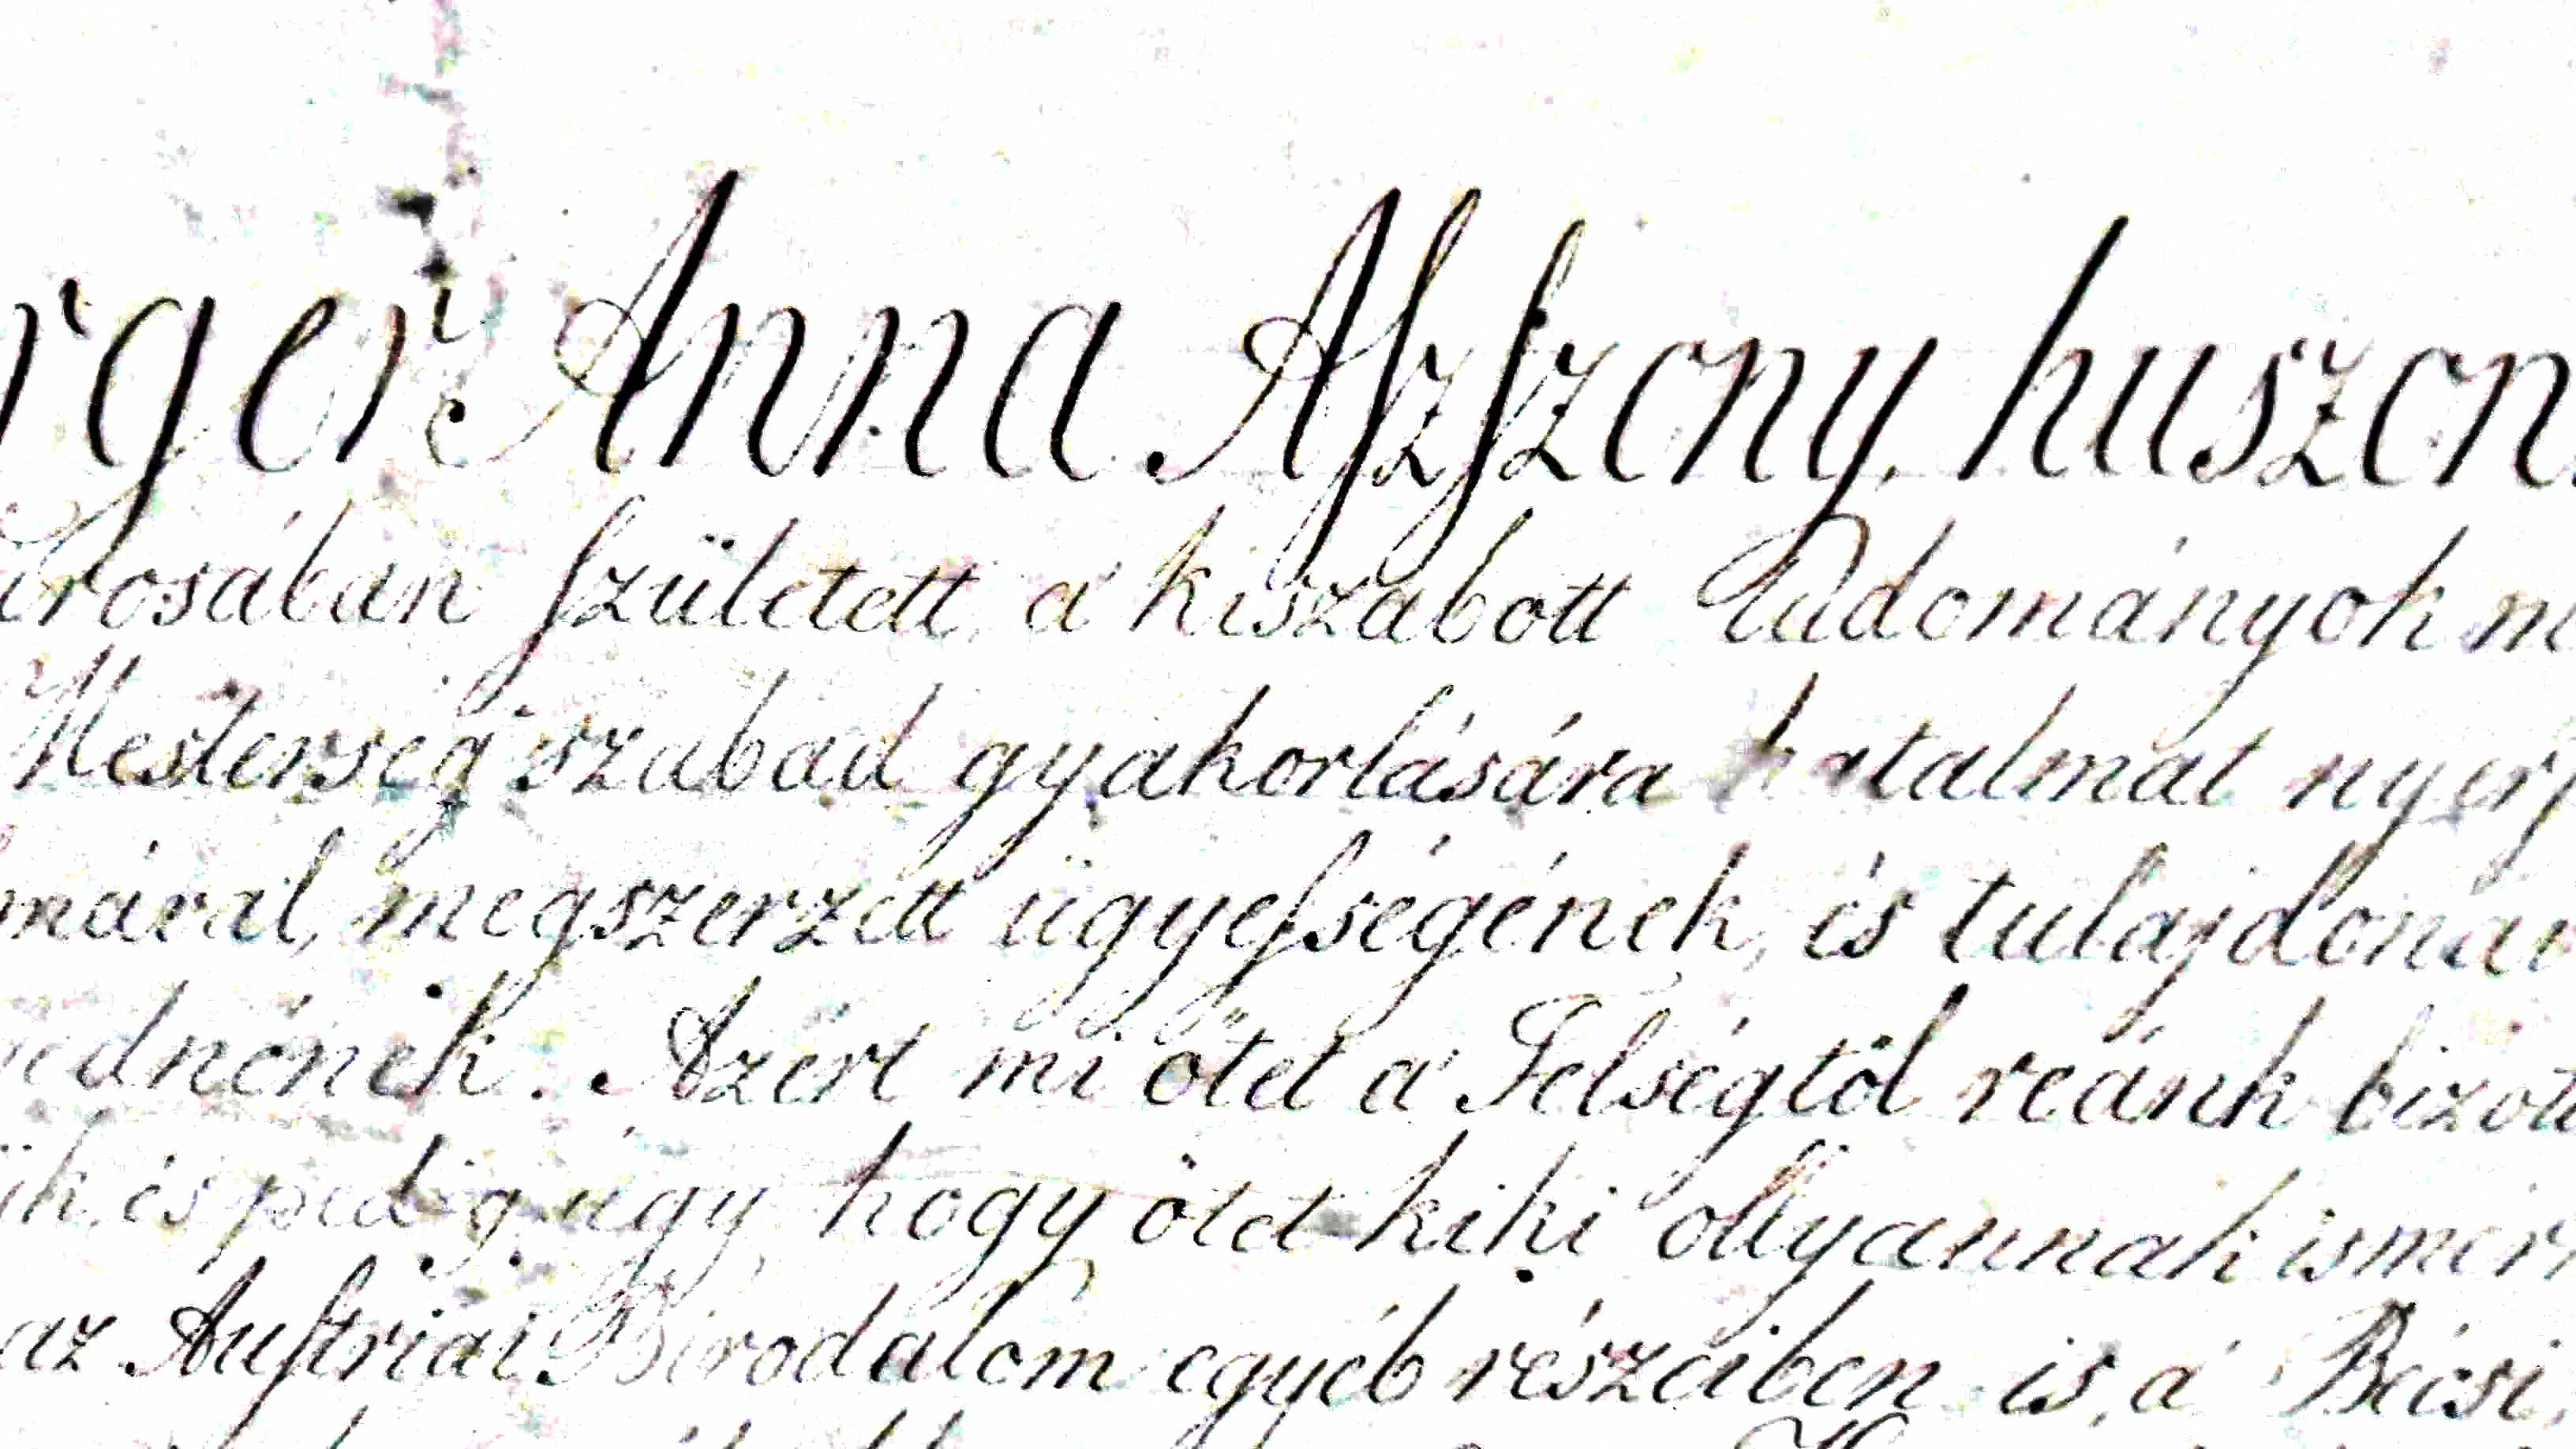 rger Anna Aſzſzony, huszon
árosában ſzületett, a' kiszabott Tudományok m
Mesterség szabad gyakorlására hatalmat nyerj
mával, megszerzett ügyeſségének, és tulajdonai
nednének. Azért mi ötet a' Felségtöl reánk bizott
ük, és pedig úgy, hogy ötet kiki ollyannak ismerj
az Auſtriai Birodalom egyéb részeiben is, a' Bécsi,